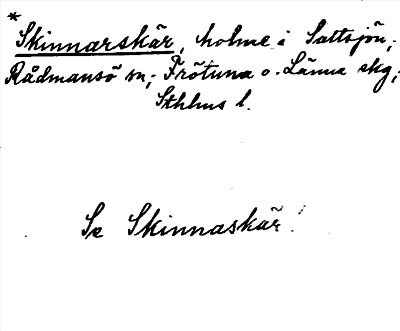 *
Skinnarskär, holme i Saltsjön,
Rådmansö sn; Frötuna o. Länna skg,
Sthlms l.
Se Skinnaskär!